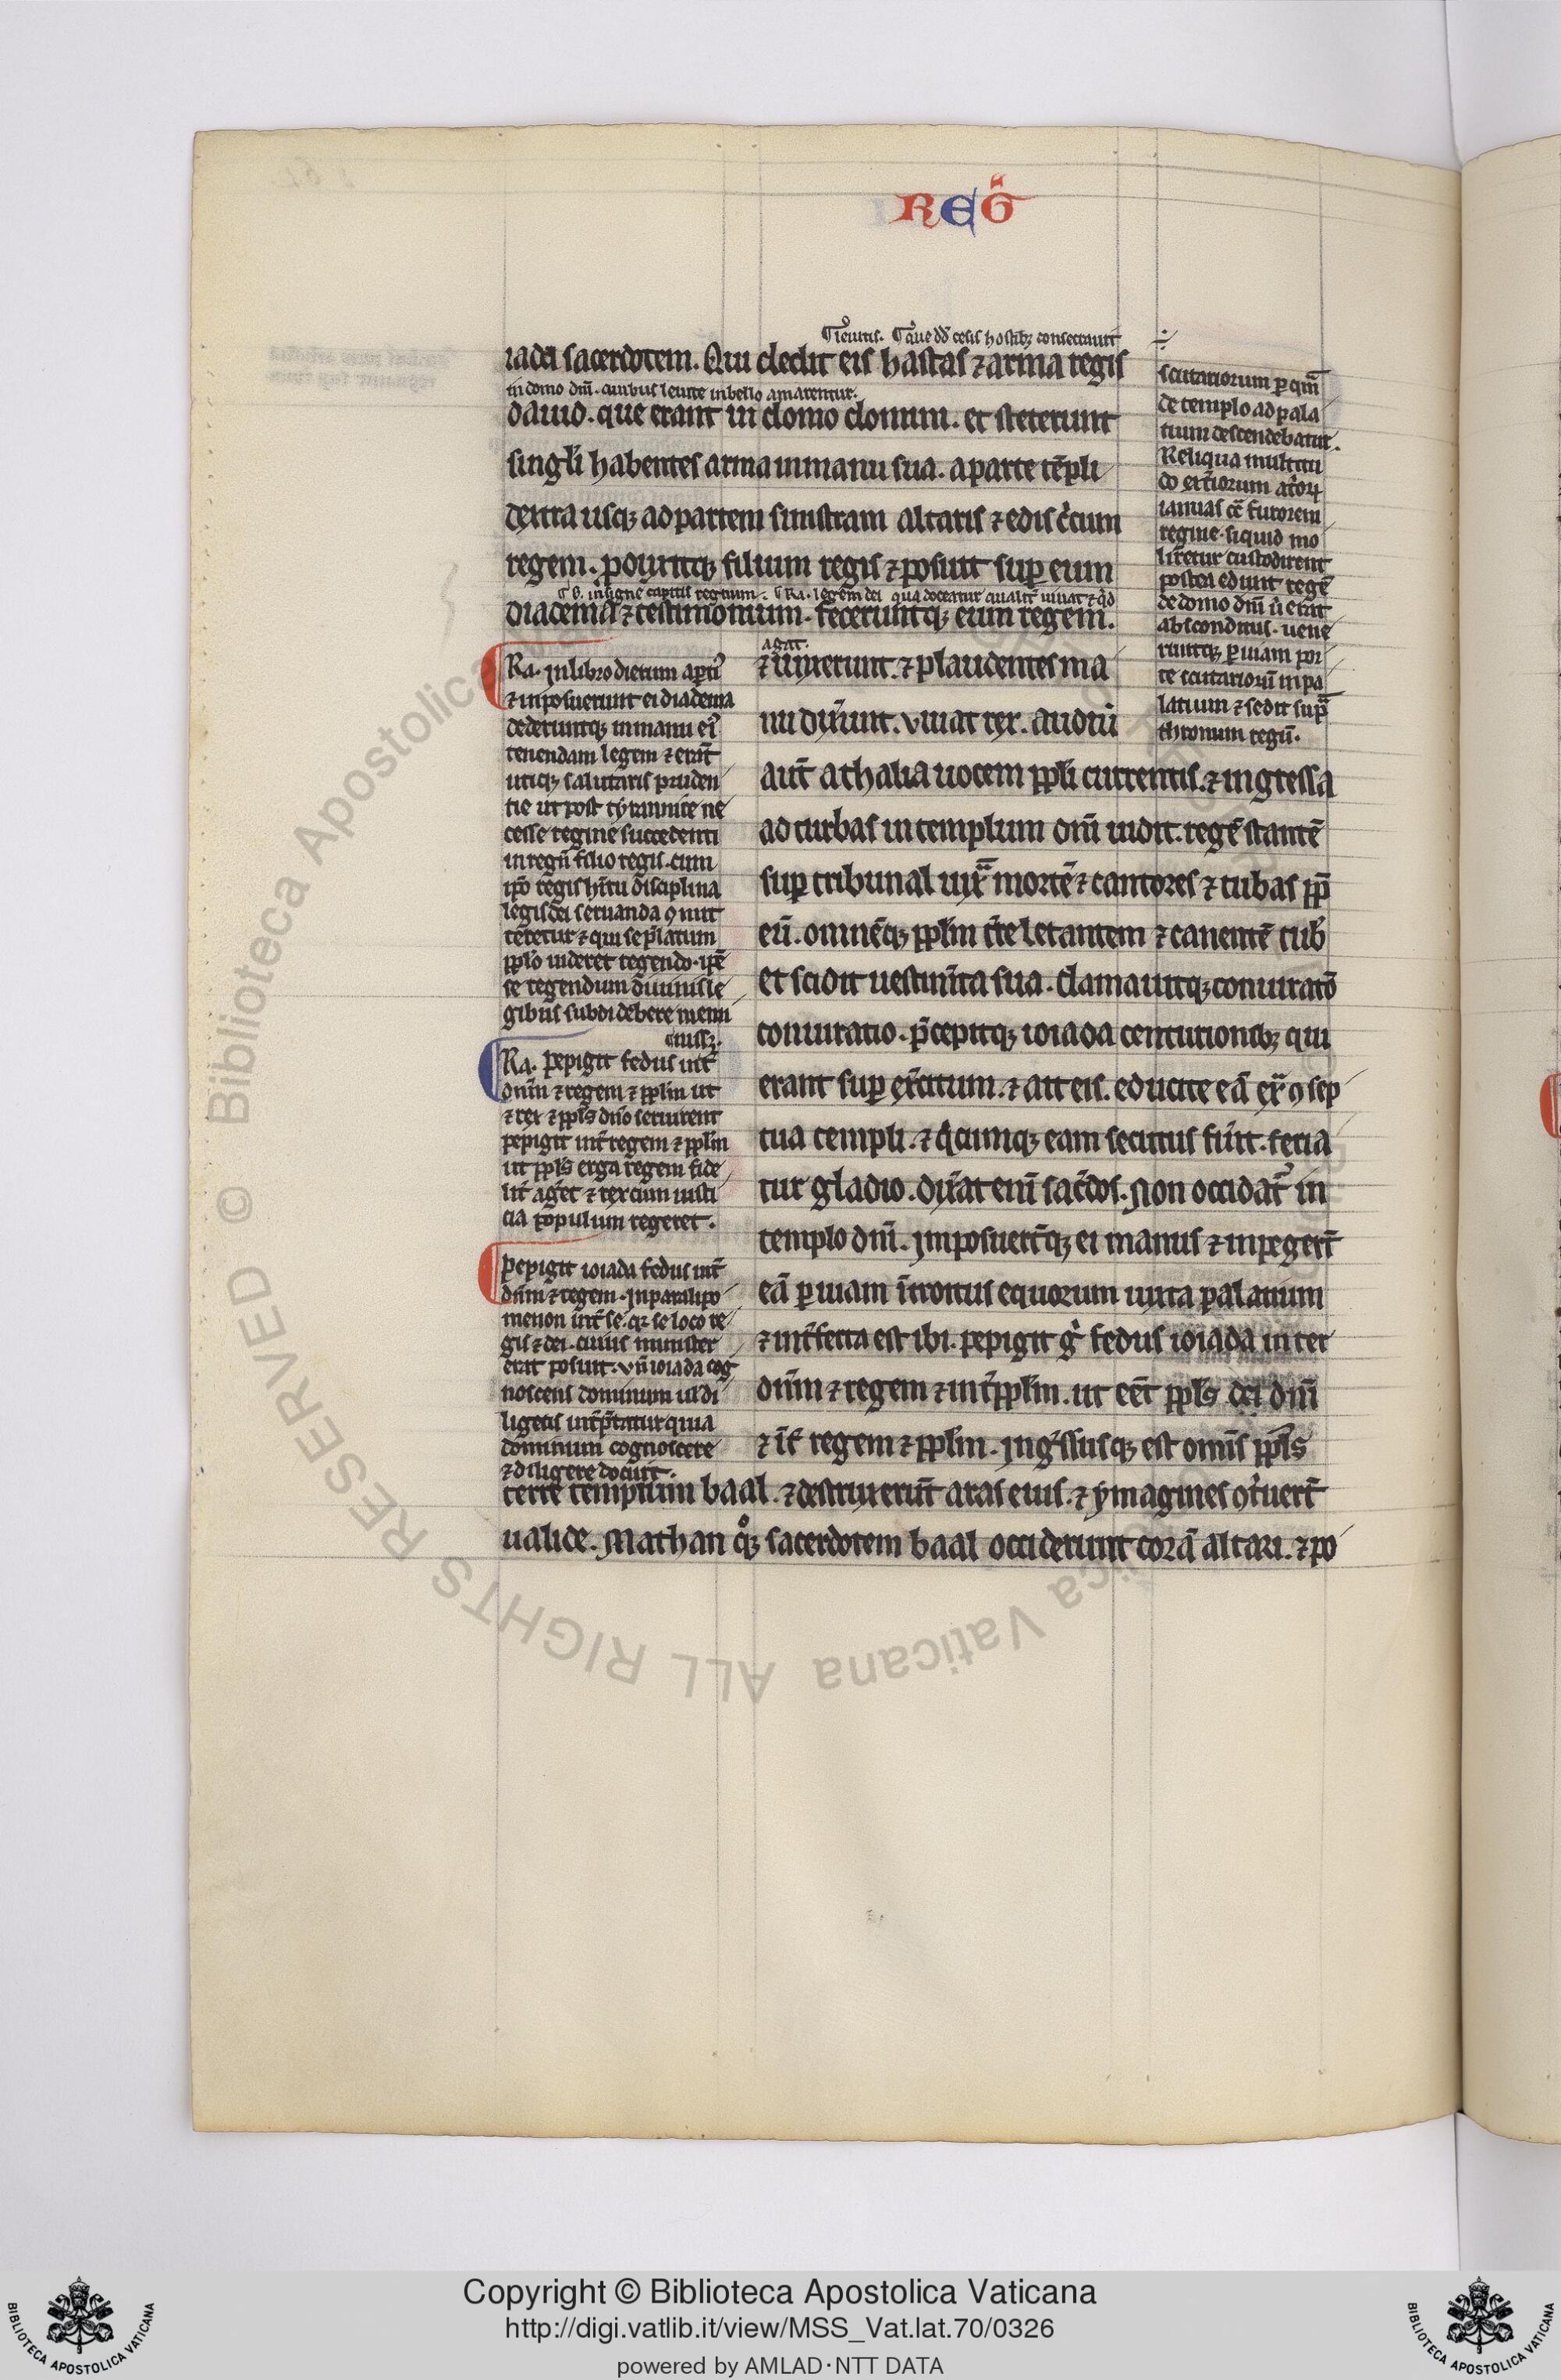 REG̃
¶ leuitis. ¶ Que dđ cesis hostibꝫ consecrauit
iadā sacerdotem. Qui dedit eis hastas ⁊ arma regis
in domo dn̄i. quibus leuite in bello armarentur.
dauid. que erant in domo domini. et steterunt
singl̄i habentes arma in manu sua. a parte tēpli
dextra usqꝫ ad partem sinistram altaris ⁊ edis c̄rcum
regem. ꝓduxitqꝫ filium regis ⁊ posuit suꝑ eum
insigne capitis regium. ¶ Ra. legem dei qua doceatur qualit̄ uiuat ⁊ qͥd
diadema ⁊ testimonium. feceruntqꝫ eum regem.
agat.
⁊ unxerunt. ⁊ plaudentes ma
nu dixerunt. viuat rex. Audiuit
aut̄ athalia uocem ppl̄i currentis. ⁊ ingressa
ad turbas in templum dn̄i uidit. regē stantē
suꝑ tribunal iuxͣ morē ⁊ cantores ⁊ tubas ꝓꝑ
eū. omnēqꝫ ppl̄m t̄re letantem ⁊ canentē tub̄
et scidit uestim̄ta sua. clamauitqꝫ coniuratō
coniuratio. p̄cepitqꝫ ioiada centurionibꝫ qui
erant suꝑ exercitum. ⁊ ait eis. educite eā exͣ ꝯsep
tua templi. ⁊ qͥcumqꝫ eam secutus fūit. feria
tur gladio. dixerat eni sac̄dos. Non occidat̄ in
templo dn̄i. Imposuerūtqꝫ ei manus ⁊ inpegert̄
eā ꝑ uiam īt̄roitus equorum iuxta palatium
⁊ int̄fecta est ibi. pepigit gͦ fedus ioiada inter
dn̄m ⁊ regem ⁊ int̄ ppl̄m. ut eēt ppl̄s dei dn̄i
⁊ īt̄ regem ⁊ ppl̄m. Ingressusqꝫ est omīs ppl̄s
terre templum baal. ⁊ destruxerūt aras eius. ⁊ ymagines ꝯt̄uert̄
ualide. Mathan qͦqꝫ sacerdotem baal occiderunt corā altari. ⁊ po
scutariorum ꝑ qm̄
de templo ad pala
tium descendebatur.
Reliqua multitu
do ext̄iorum at̄oꝝ
ianuas cͣ furorem
regine. siquid mo
lir̄etur custodirent
postea edunt regē
de domo dn̄i u͛ erat
absconditus. uene
runtqꝫ ꝑ uiam por
te scutarioꝝ in pa
latium ⁊ sedit supͣ
thronum regū.
Ra. In libro dierum aꝑti͛
⁊ inposuerunt ei diadema
dederuntqꝫ in manu ei͛
tenendam legem ⁊ erāt
utiqꝫ salutaris pruden
tie ut post tyrannice ne
cesse regine succedenti
in regn̄ filio regis. cum
ip̄o regis hītu disciplina
legis dei seruanda ꝯmit
teretur ⁊ qui se p̄latum
ppl̄o uideret regendo. ip̄e
se regendum diuinis le
gibus subdi debere memi
nisset.
Ra. pepigit fedus int̄
dn̄m ⁊ regem ⁊ ppl̄m ut
⁊ rex ⁊ ppl̄s dn̄o seruirent
pepigit int̄ regem ⁊ ppl̄m
ut ppl̄s erga regem fide
lit̄ ag̓et ⁊ rex cum iusti
cia populum regeret.
Pepigit ioiada fedus int̄
dn̄m ⁊ regem. In paralipo
menon int̄ se. qꝛ se loco re
gis ⁊ dei. cuius minister
erat posuit. vn̄ ioiada cog
noscens dominum ul̄ di
ligens int̄p̄tatur quia
dominum cognoscere
⁊ diligere docuit.
Copyright © Biblioteca Apostolica Vaticana
http://digi.vatlib.it/view/MSS_Vat.lat.70/0326
powered by AMLAD·NTT DATA